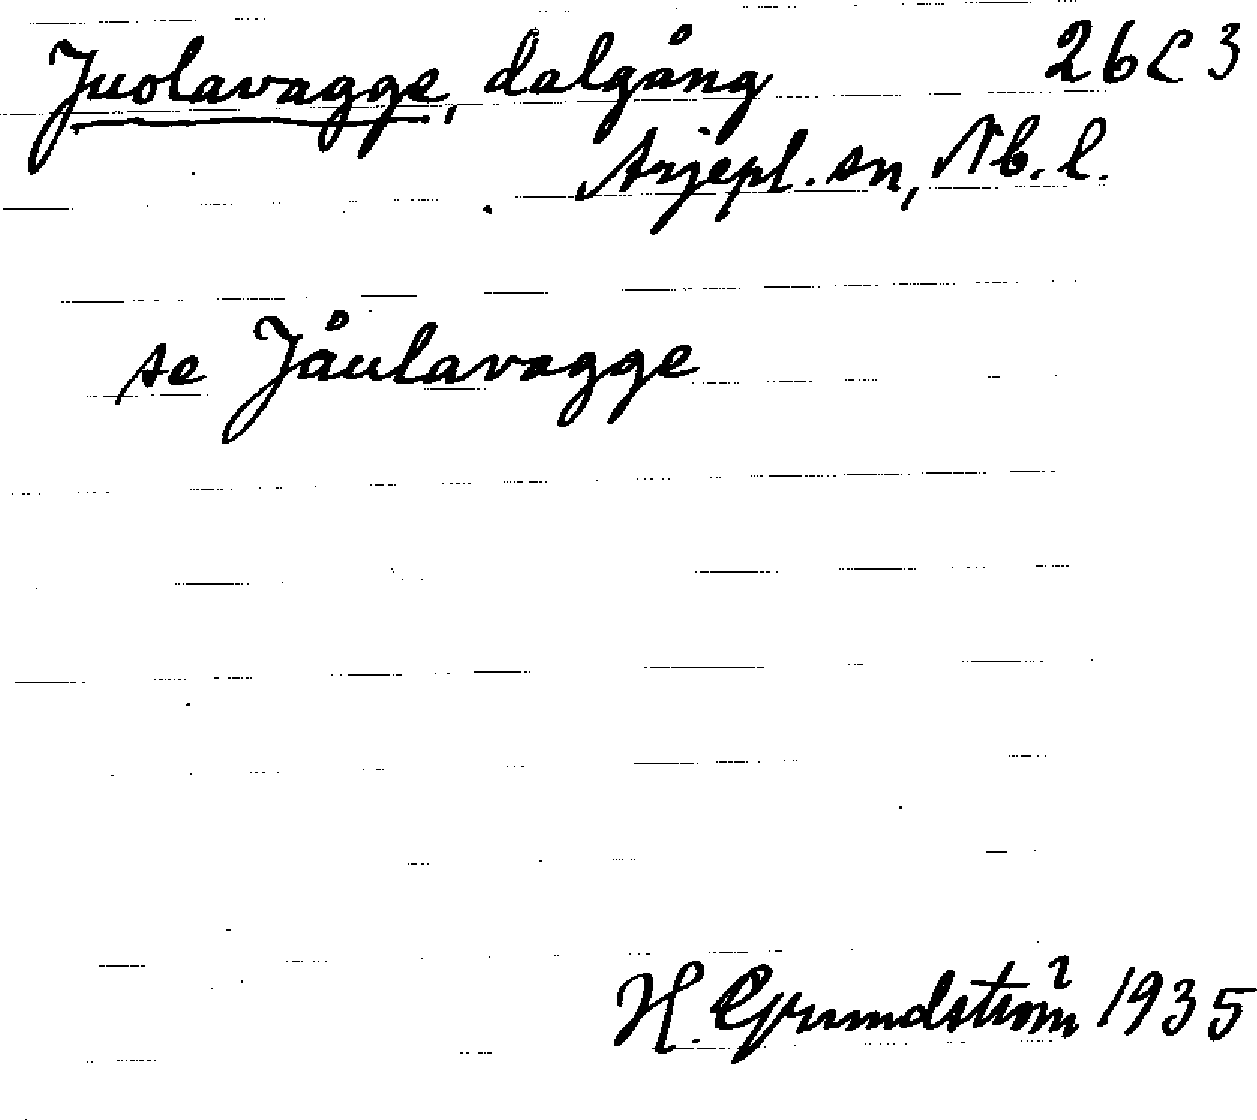 Juolavagge, dalgång 26C3
Arjepl. sn, Nb. l.
se Jåulavagge
H. Grundström 1935